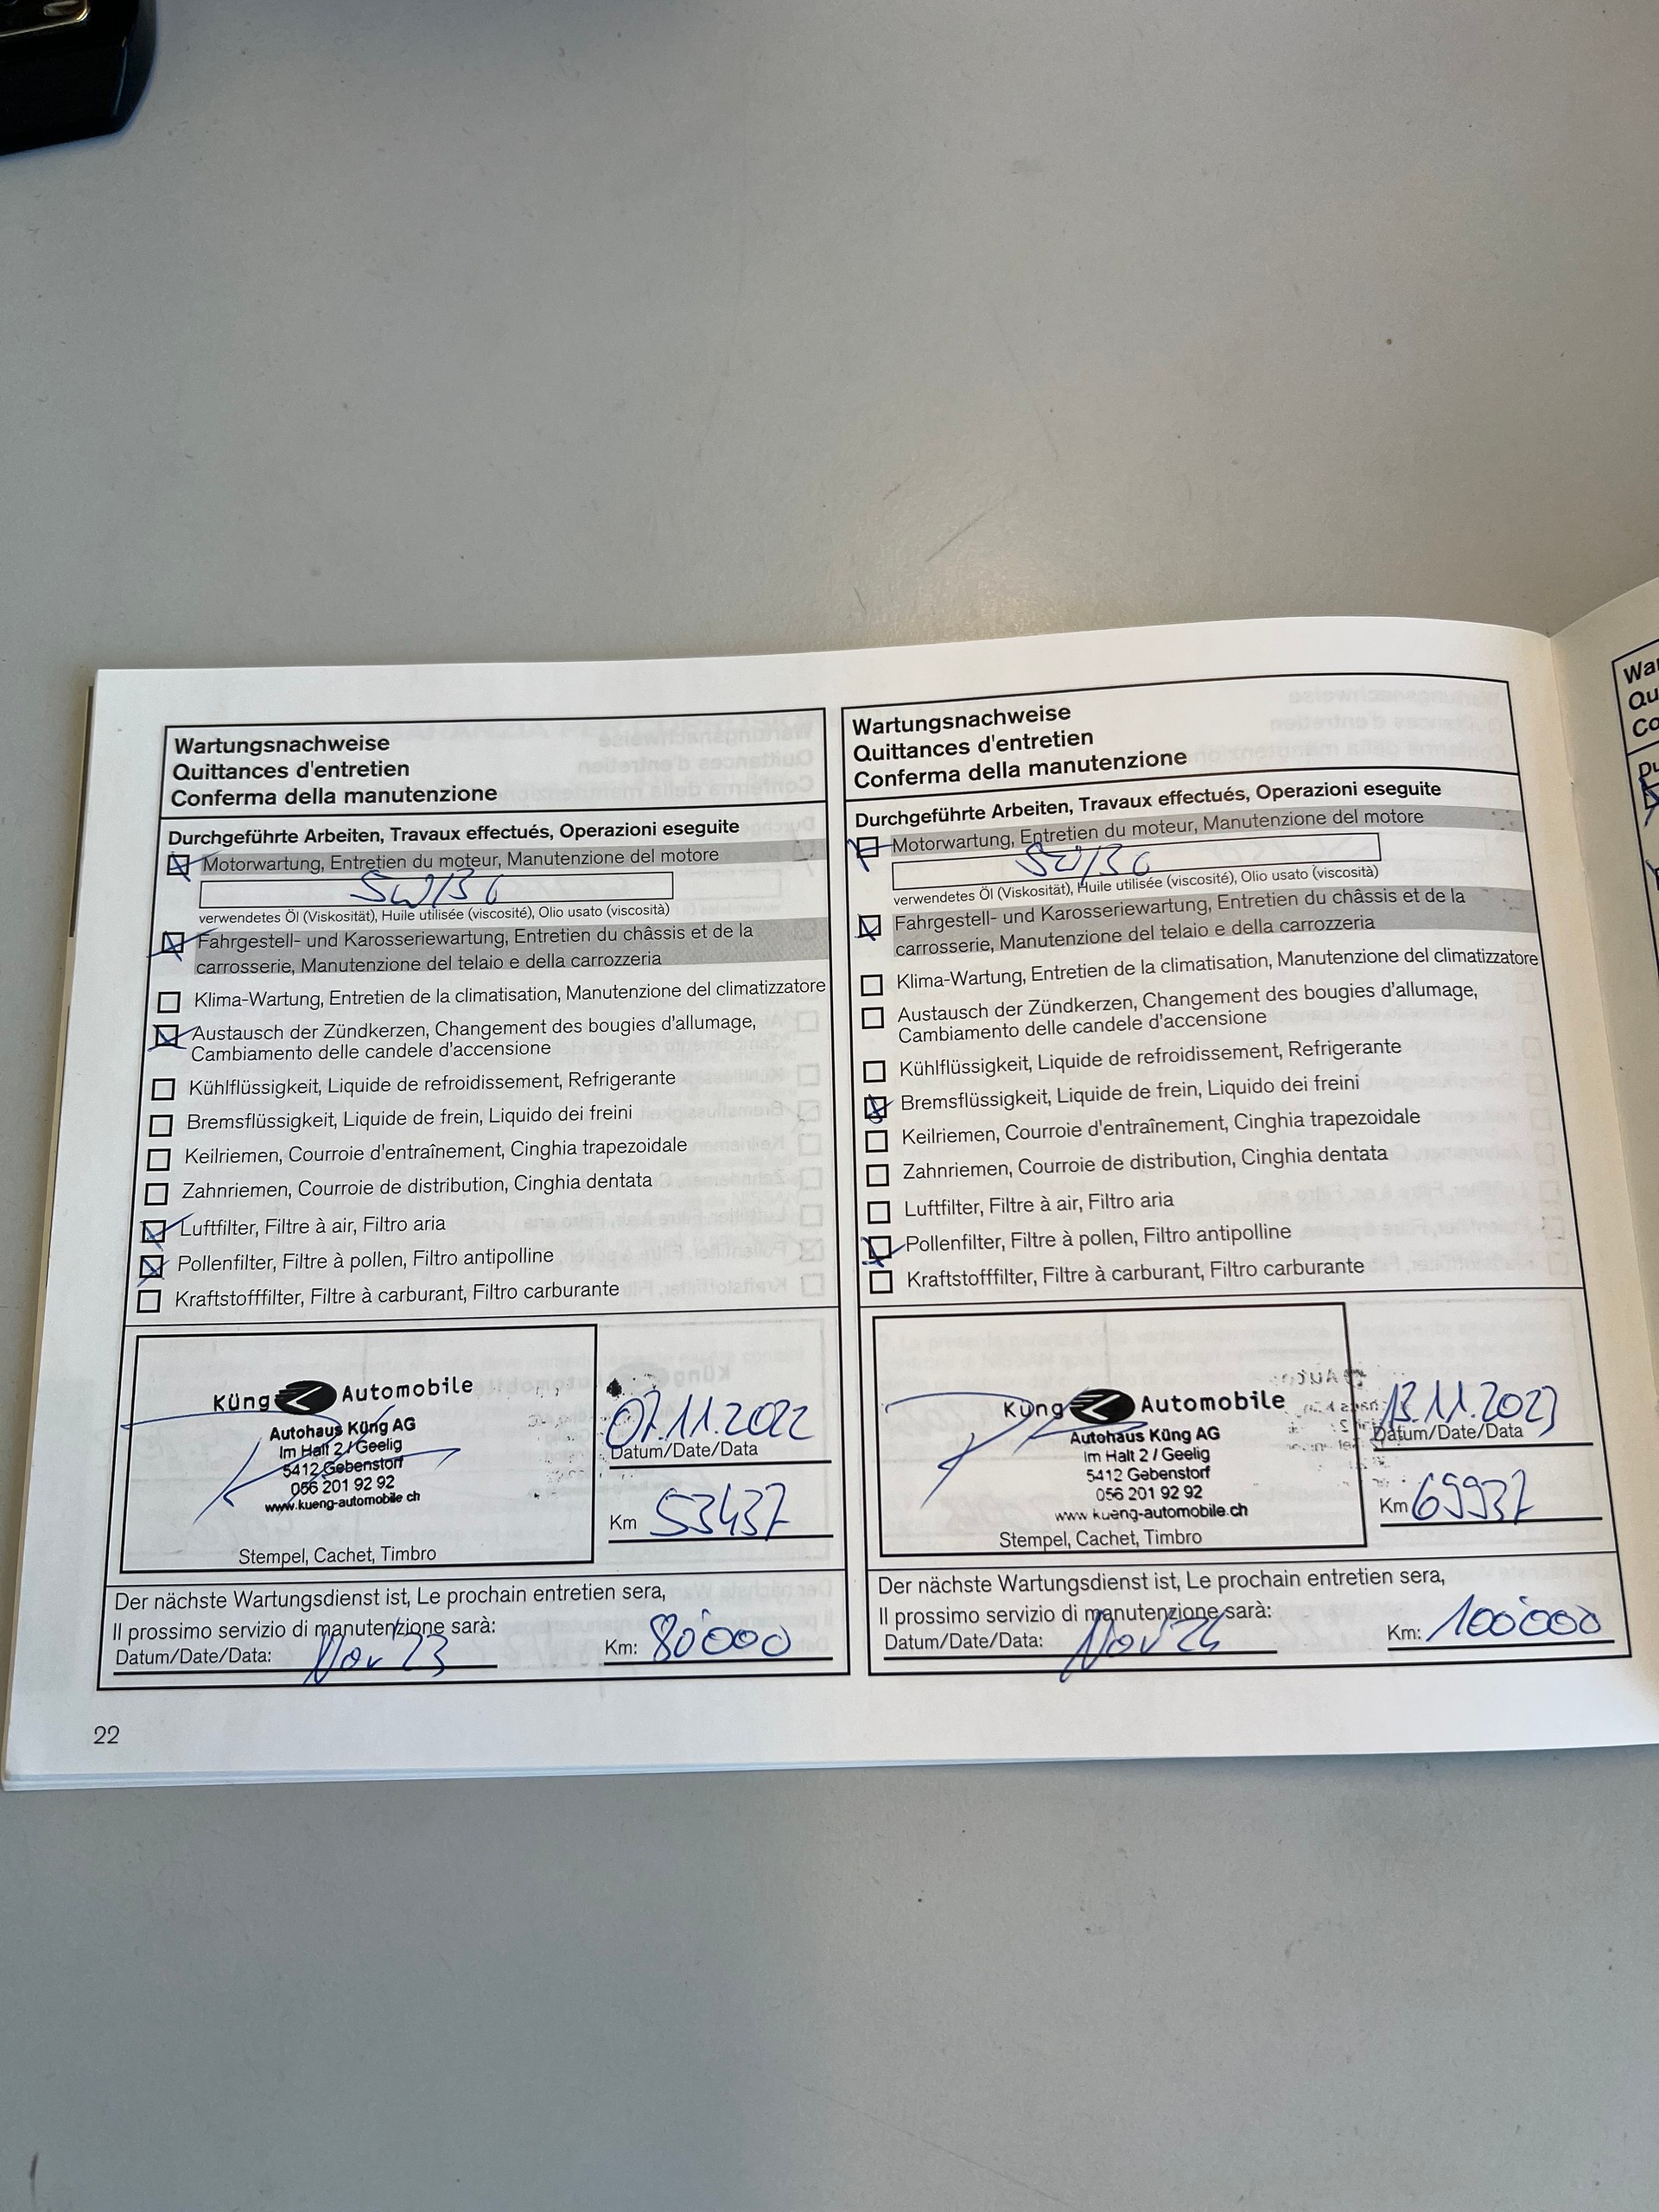 Wartungsnachweise
Quittances d'entretien
Conferma della manutenzione
Durchgeführte Arbeiten, Travaux effectués, Operazioni eseguite
Motorwartung, Entretien du moteur, Manutenzione del motore
5W/30
verwendetes Öl (Viskosität), Huile utilisée (viscosité), Olio usato (viscosità)
Fahrgestell- und Karosseriewartung, Entretien du châssis et de la
carrosserie, Manutenzione del telaio e della carrozzeria
Klima-Wartung, Entretien de la climatisation, Manutenzione del climatizzatore
Austausch der Zündkerzen, Changement des bougies d'allumage,
Cambiamento delle candele d'accensione
Kühlflüssigkeit, Liquide de refroidissement, Refrigerante
Bremsflüssigkeit, Liquide de frein, Liquido dei freini
Keilriemen, Courroie d'entraînement, Cinghia trapezoidale
Zahnriemen, Courroie de distribution, Cinghia dentata
Luftfilter, Filtre à air, Filtro aria
Pollenfilter, Filtre à pollen, Filtro antipolline
Kraftstofffilter, Filtre à carburant, Filtro carburante
Küng Automobile
Autohaus Küng AG
Im Halt 2 / Geelig
5412 Gebenstorf
056 201 92 92
www.kueng-automobile ch
Stempel, Cachet, Timbro
07.11.2022
Datum/Date/Data
Km 53437
Der nächste Wartungsdienst ist, Le prochain entretien sera,
Il prossimo servizio di manutenzione sarà:
Datum/Date/Data: Nov'23 Km: 80'000
22
Wartungsnachweise
Quittances d'entretien
Conferma della manutenzione
Durchgeführte Arbeiten, Travaux effectués, Operazioni eseguite
Motorwartung, Entretien du moteur, Manutenzione del motore
5W/30
verwendetes Öl (Viskosität), Huile utilisée (viscosité), Olio usato (viscosità)
Fahrgestell- und Karosseriewartung, Entretien du châssis et de la
carrosserie, Manutenzione del telaio e della carrozzeria
Klima-Wartung, Entretien de la climatisation, Manutenzione del climatizzatore
Austausch der Zündkerzen, Changement des bougies d'allumage,
Cambiamento delle candele d'accensione
Kühlflüssigkeit, Liquide de refroidissement, Refrigerante
Bremsflüssigkeit, Liquide de frein, Liquido dei freini
Keilriemen, Courroie d'entraînement, Cinghia trapezoidale
Zahnriemen, Courroie de distribution, Cinghia dentata
Luftfilter, Filtre à air, Filtro aria
Pollenfilter, Filtre à pollen, Filtro antipolline
Kraftstofffilter, Filtre à carburant, Filtro carburante
Küng Automobile
Autohaus Küng AG
Im Halt 2 / Geelig
5412 Gebenstorf
056 201 92 92
www kueng-automobile.ch
Stempel, Cachet, Timbro
13.11.2023
Datum/Date/Data
Km 69937
Der nächste Wartungsdienst ist, Le prochain entretien sera,
Il prossimo servizio di manutenzione sarà:
Datum/Date/Data: Nov'24 Km: 100'000